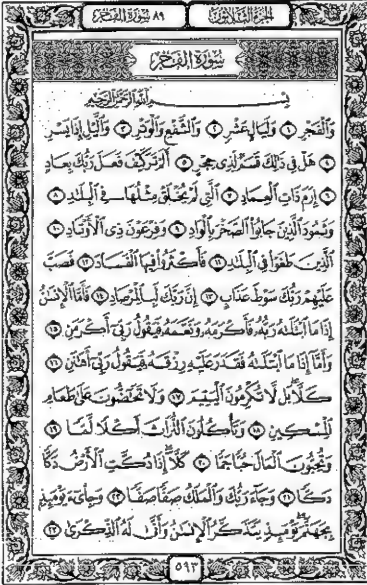 ٨٩ سُورَةُ الفَجْرِ الجزء الثلاثون
سُورَةُ الفَجْرِ
بِسْمِ اللَّهِ الرَّحْمَٰنِ الرَّحِيمِ
وَالْفَجْرِ ١ وَلَيَالٍ عَشْرٍ ٢ وَالشَّفْعِ وَالْوَتْرِ ٣ وَاللَّيْلِ إِذَا يَسْرِ
٤ هَلْ فِي ذَٰلِكَ قَسَمٌ لِّذِي حِجْرٍ ٥ أَلَمْ تَرَ كَيْفَ فَعَلَ رَبُّكَ بِعَادٍ
٦ إِرَمَ ذَاتِ الْعِمَادِ ٧ الَّتِي لَمْ يُخْلَقْ مِثْلُهَا فِي الْبِلَٰدِ ٨
وَثَمُودَ الَّذِينَ جَابُوا الصَّخْرَ بِالْوَادِ ٩ وَفِرْعَوْنَ ذِي الْأَوْتَادِ ١٠
الَّذِينَ طَغَوْا فِي الْبِلَٰدِ ١١ فَأَكْثَرُوا فِيهَا الْفَسَادَ ١٢ فَصَبَّ
عَلَيْهِمْ رَبُّكَ سَوْطَ عَذَابٍ ١٣ إِنَّ رَبَّكَ لَبِالْمِرْصَادِ ١٤ فَأَمَّا الْإِنسَٰنُ
إِذَا مَا ابْتَلَىٰهُ رَبُّهُ فَأَكْرَمَهُ وَنَعَّمَهُ فَيَقُولُ رَبِّي أَكْرَمَنِ ١٥
وَأَمَّا إِذَا مَا ابْتَلَىٰهُ فَقَدَرَ عَلَيْهِ رِزْقَهُ فَيَقُولُ رَبِّي أَهَٰنَنِ ١٦
كَلَّا بَل لَّا تُكْرِمُونَ الْيَتِيمَ ١٧ وَلَا تَحَٰضُّونَ عَلَىٰ طَعَامِ
الْمِسْكِينِ ١٨ وَتَأْكُلُونَ التُّرَاثَ أَكْلًا لَّمًّا ١٩
وَتُحِبُّونَ الْمَالَ حُبًّا جَمًّا ٢٠ كَلَّا إِذَا دُكَّتِ الْأَرْضُ دَكًّا
دَكًّا ٢١ وَجَاءَ رَبُّكَ وَالْمَلَكُ صَفًّا صَفًّا ٢٢ وَجِاْيءَ يَوْمَئِذٍ
بِجَهَنَّمَ يَوْمَئِذٍ يَتَذَكَّرُ الْإِنسَٰنُ وَأَنَّىٰ لَهُ الذِّكْرَىٰ ٢٣
٥٩٣